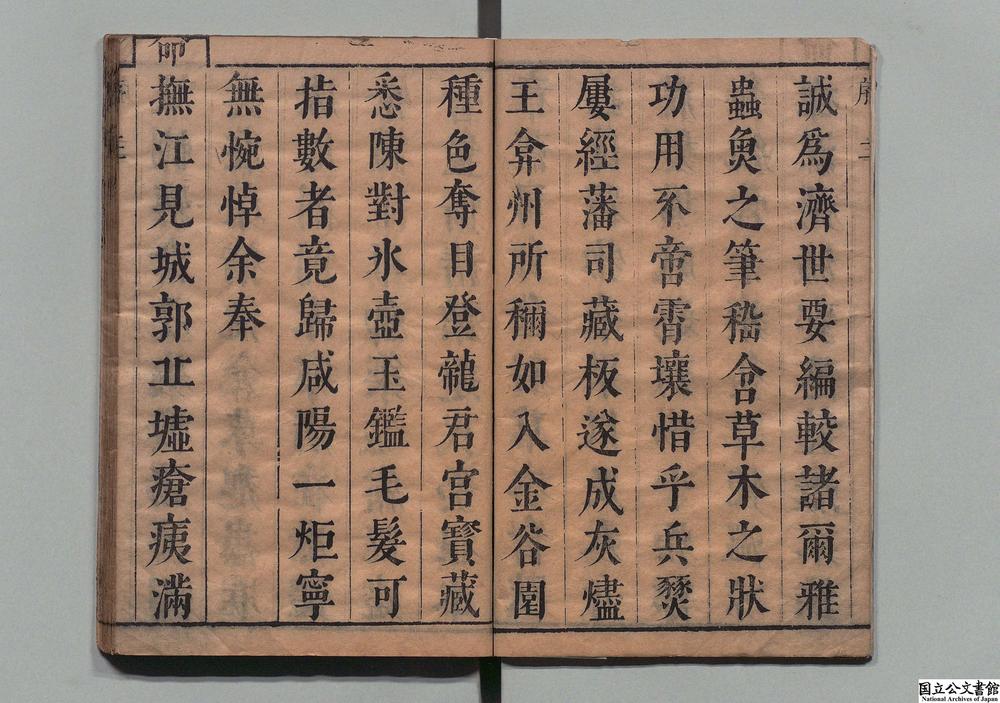 誠爲濟世要編較諸爾雅
蟲奐之筆嵇含草木之狀
功用不啻霄壤惜乎兵燹
屢經藩司藏板遂成灰燼
王弇州所稱如入金谷園
種色奪目登龍君宮寶藏
悉陳對氷壺玉鑑毛髮可
指數者竟歸咸陽一炬寧
無惋悼余奉
命
撫江見城郭丘墟瘡痍滿
国立公文書館
National Archives of Japan